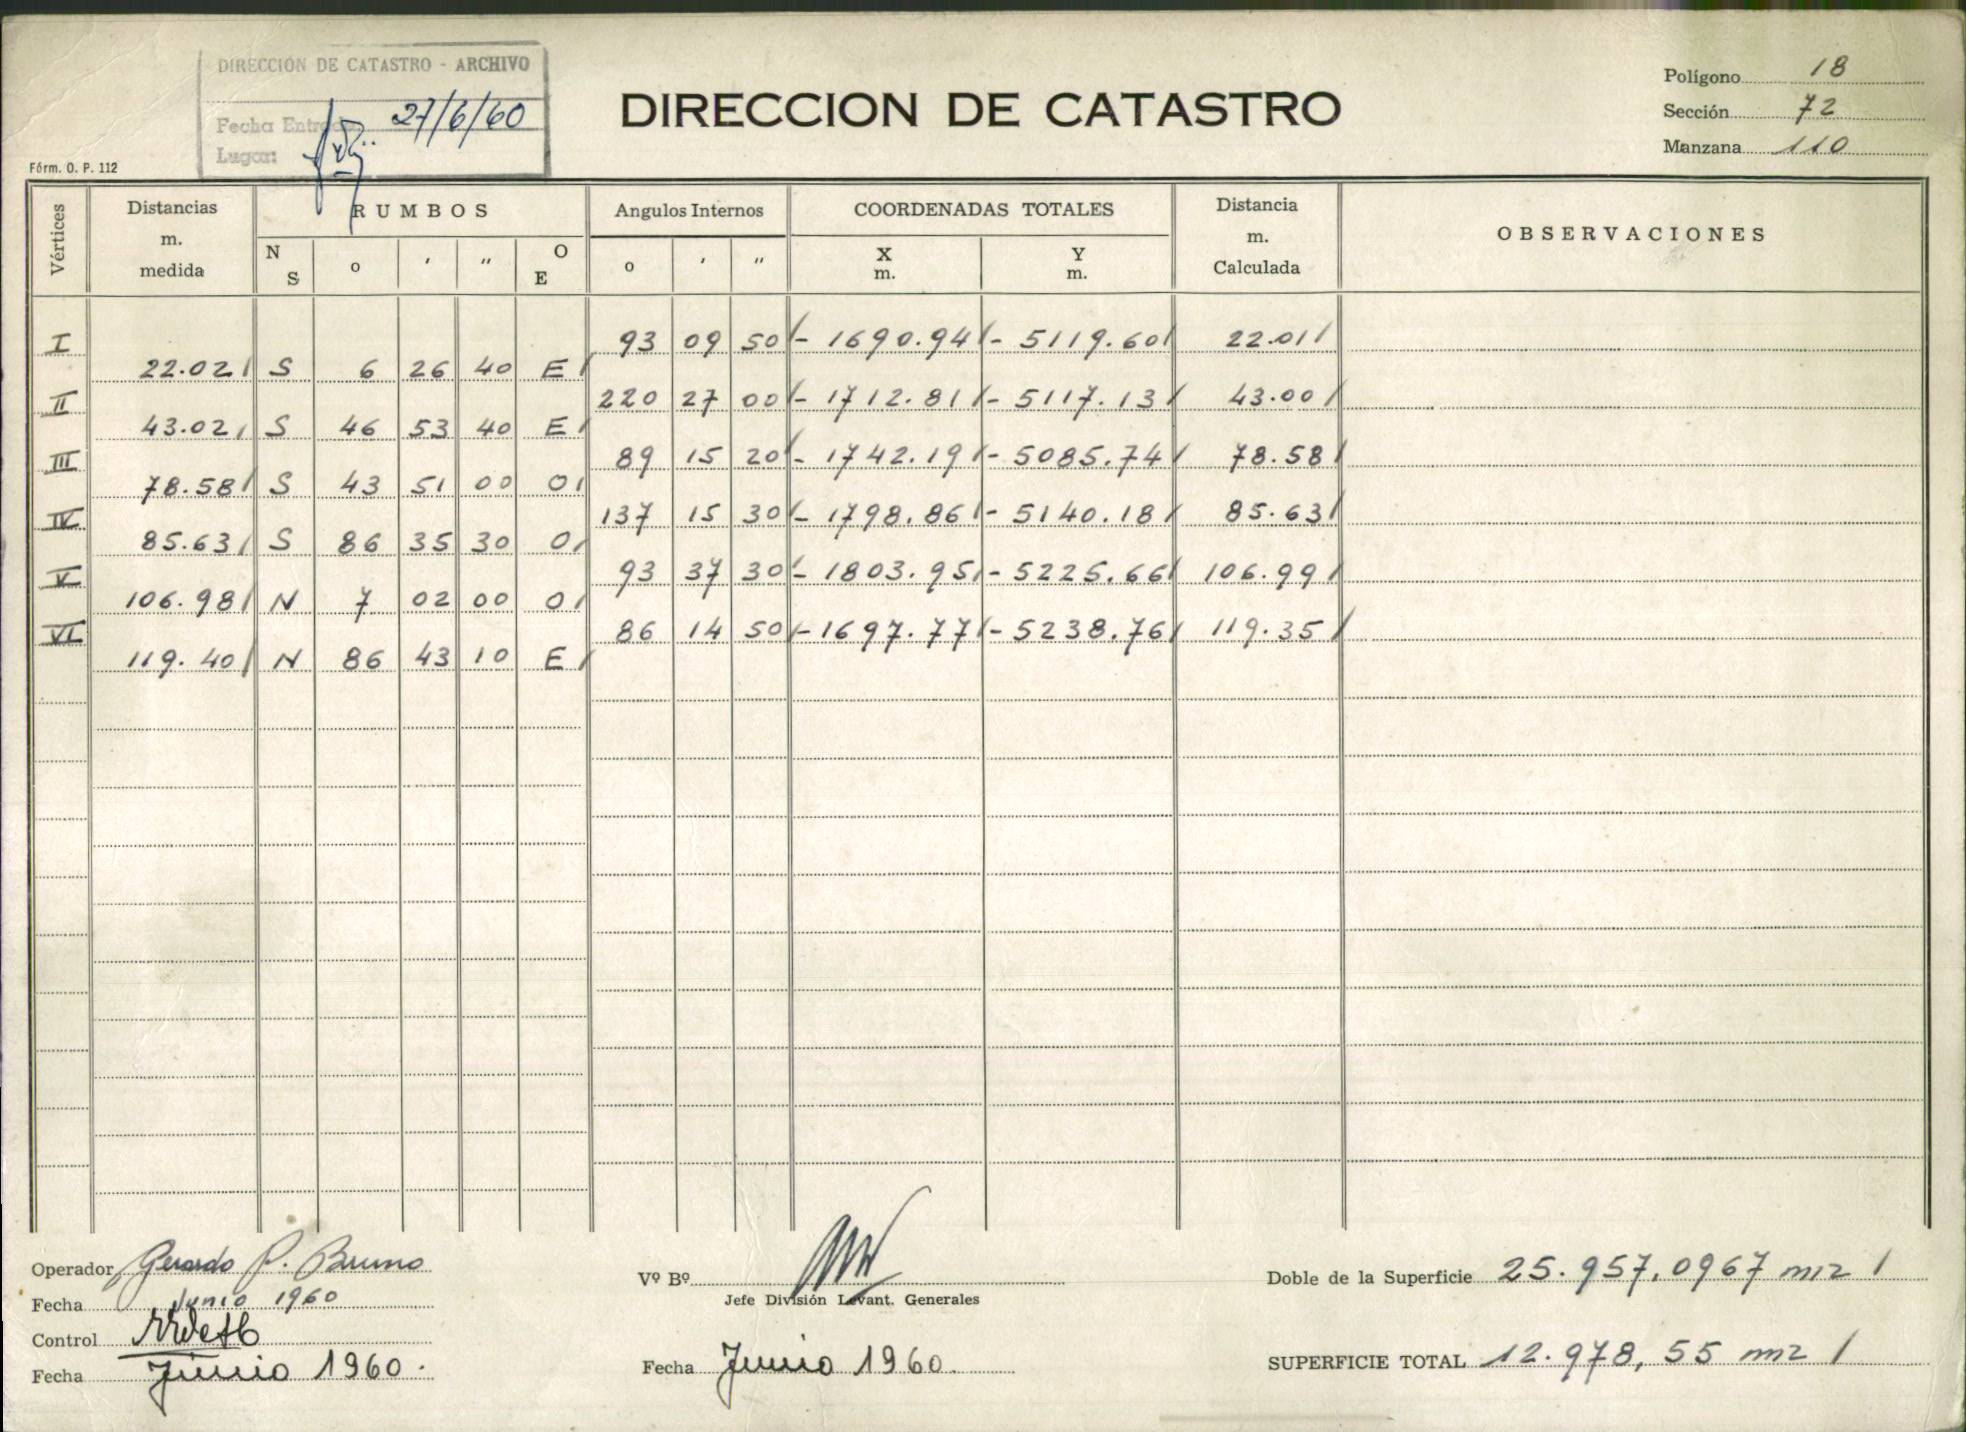 DIRECCION DE CATASTRO - ARCHIVO
Fecha Entrada 27/6/60
Lugar:
Fórm. O. P. 112
DIRECCION DE CATASTRO
Polígono 18
Sección 72
Manzana 110
Vértices Distancias m. medida RUMBOS N S o ' '' O E Angulos Internos o ' '' COORDENADAS TOTALES X m. Y m. Distancia m. Calculada OBSERVACIONES
I 93 09 50 - 1690.94 - 5119.60 22.01
22.02 S 6 26 40 E
II 220 27 00 - 1712.81 - 5117.13 43.00
43.02 S 46 53 40 E
III 89 15 20 - 1742.19 - 5085.74 78.58
78.58 S 43 51 00 O
IV 137 15 30 - 1798.86 - 5140.18 85.63
85.63 S 86 35 30 O
V 93 37 30 - 1803.95 - 5225.66 106.99
106.98 N 7 02 00 O
VI 86 14 50 - 1697.77 - 5238.76 119.35
119.40 N 86 43 10 E
Operador Gerardo P. Bruno
Fecha Junio 1960
Control
Fecha Junio 1960.
Vº Bº
Jefe División Levant. Generales
Fecha Junio 1960.
Doble de la Superficie 25.957,0967 m2
SUPERFICIE TOTAL 12.978,55 m2